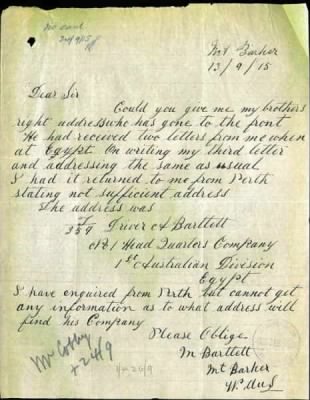 no card
20/9/15
Mt Barker
13/9/15
Dear Sir
Could you give me my brothers
right address who has gone to the front
He had received two letters from me when
at Egypt. On writing my third letter
and addressing the same as usual
I had it returned to me from Perth
stating not sufficient address
The address was
359 Driver A Bartlett
No 1 Head Quarters Company
1st Australian Division
Egypt
I have enquired from Perth but cannot get
any information as to what address will
find his Company
Please Oblige
M Bartlett
Mt Barker
W. Aus
24/9